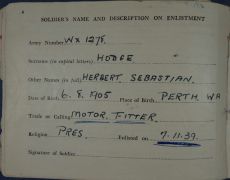 SOLDIER'S NAME AND DESCRIPTION ON ENLISTMENT
Army Number WX 1278.
Surname (in capital letters) HODGE
Other Names (in full) HERBERT SEBASTIAN.
Date of Birth 6. 8. 1905 Place of Birth PERTH. WA
Trade or Calling MOTOR FITTER.
Religion PRES. Enlisted on 7. 11. 39.
Signature of Soldier